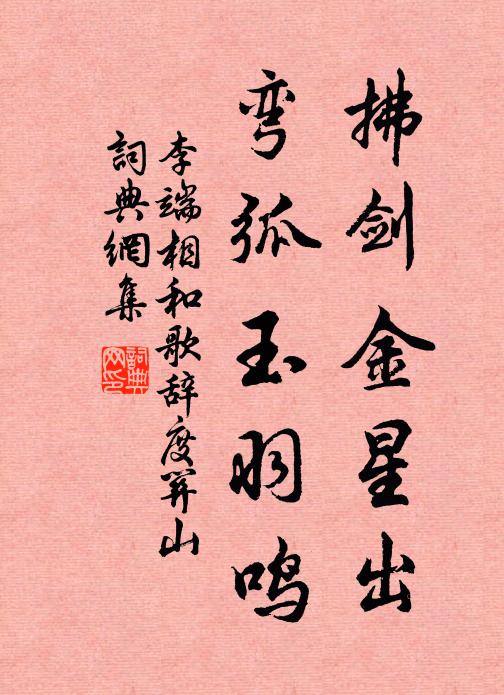 拂剑金星出
弯弧玉羽鸣
李端相和歌辞度關山
詞典網集
詞典网印